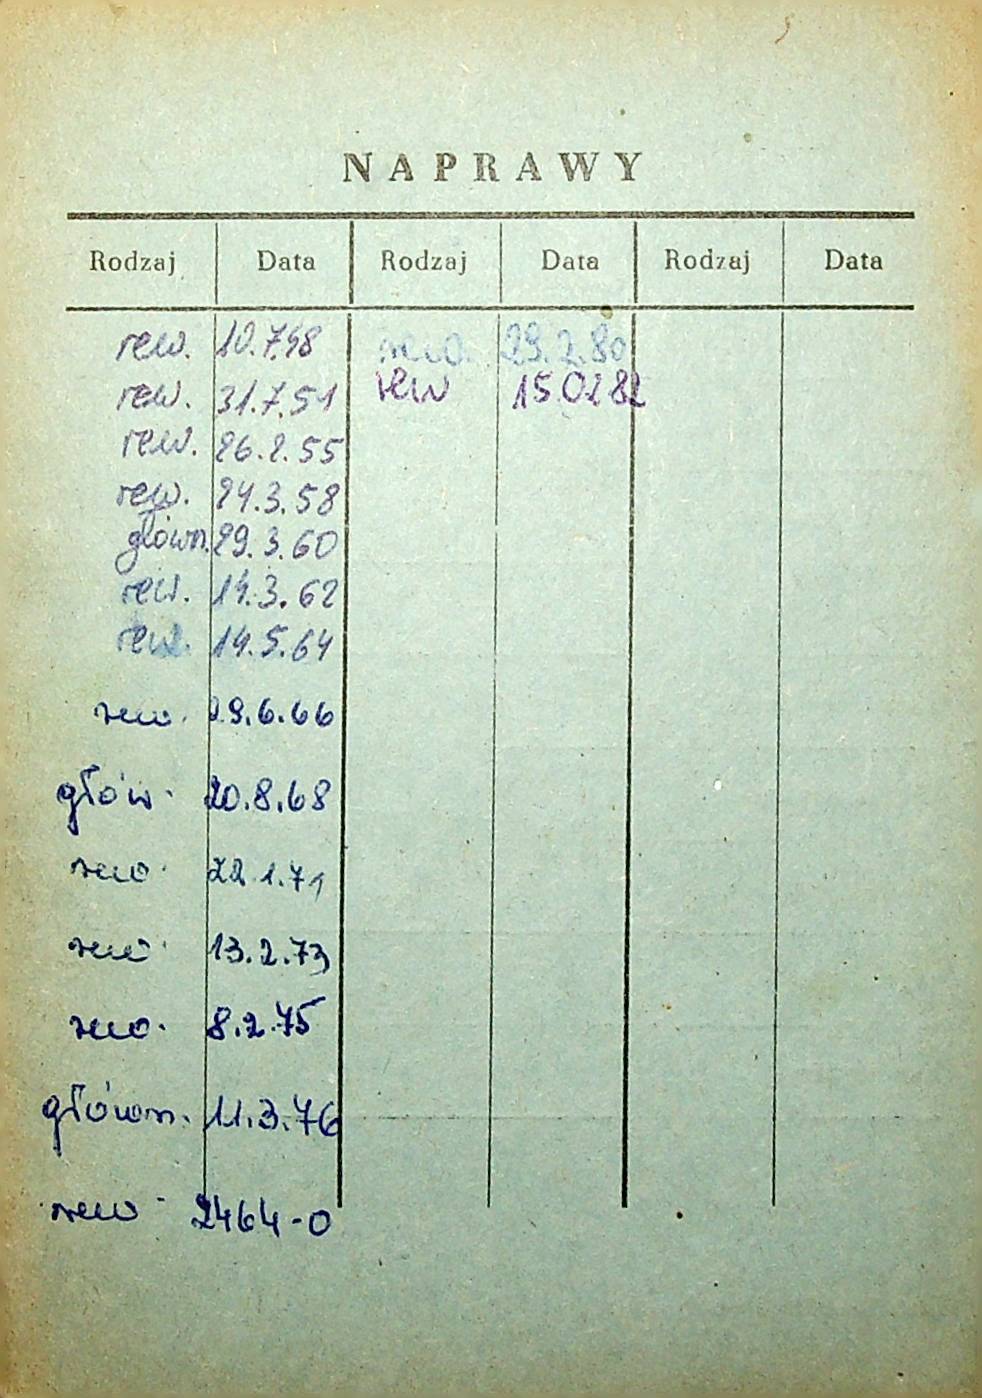 NAPRAWY
Rodzaj Data Rodzaj Data Rodzaj Data
rew. 10.7.48 rew. 29.2.80
rew. 31.7.51 rew 15.02.82
rew. 26.2.55
rew. 24.3.58
główn. 29.3.60
rew. 14.3.62
rew. 14.5.64
rew. 29.6.66
głów. 20.8.68
rew. 22.1.71
rew. 13.2.73
rew. 8.2.75
główn. 11.3.76
rew. 2464-0